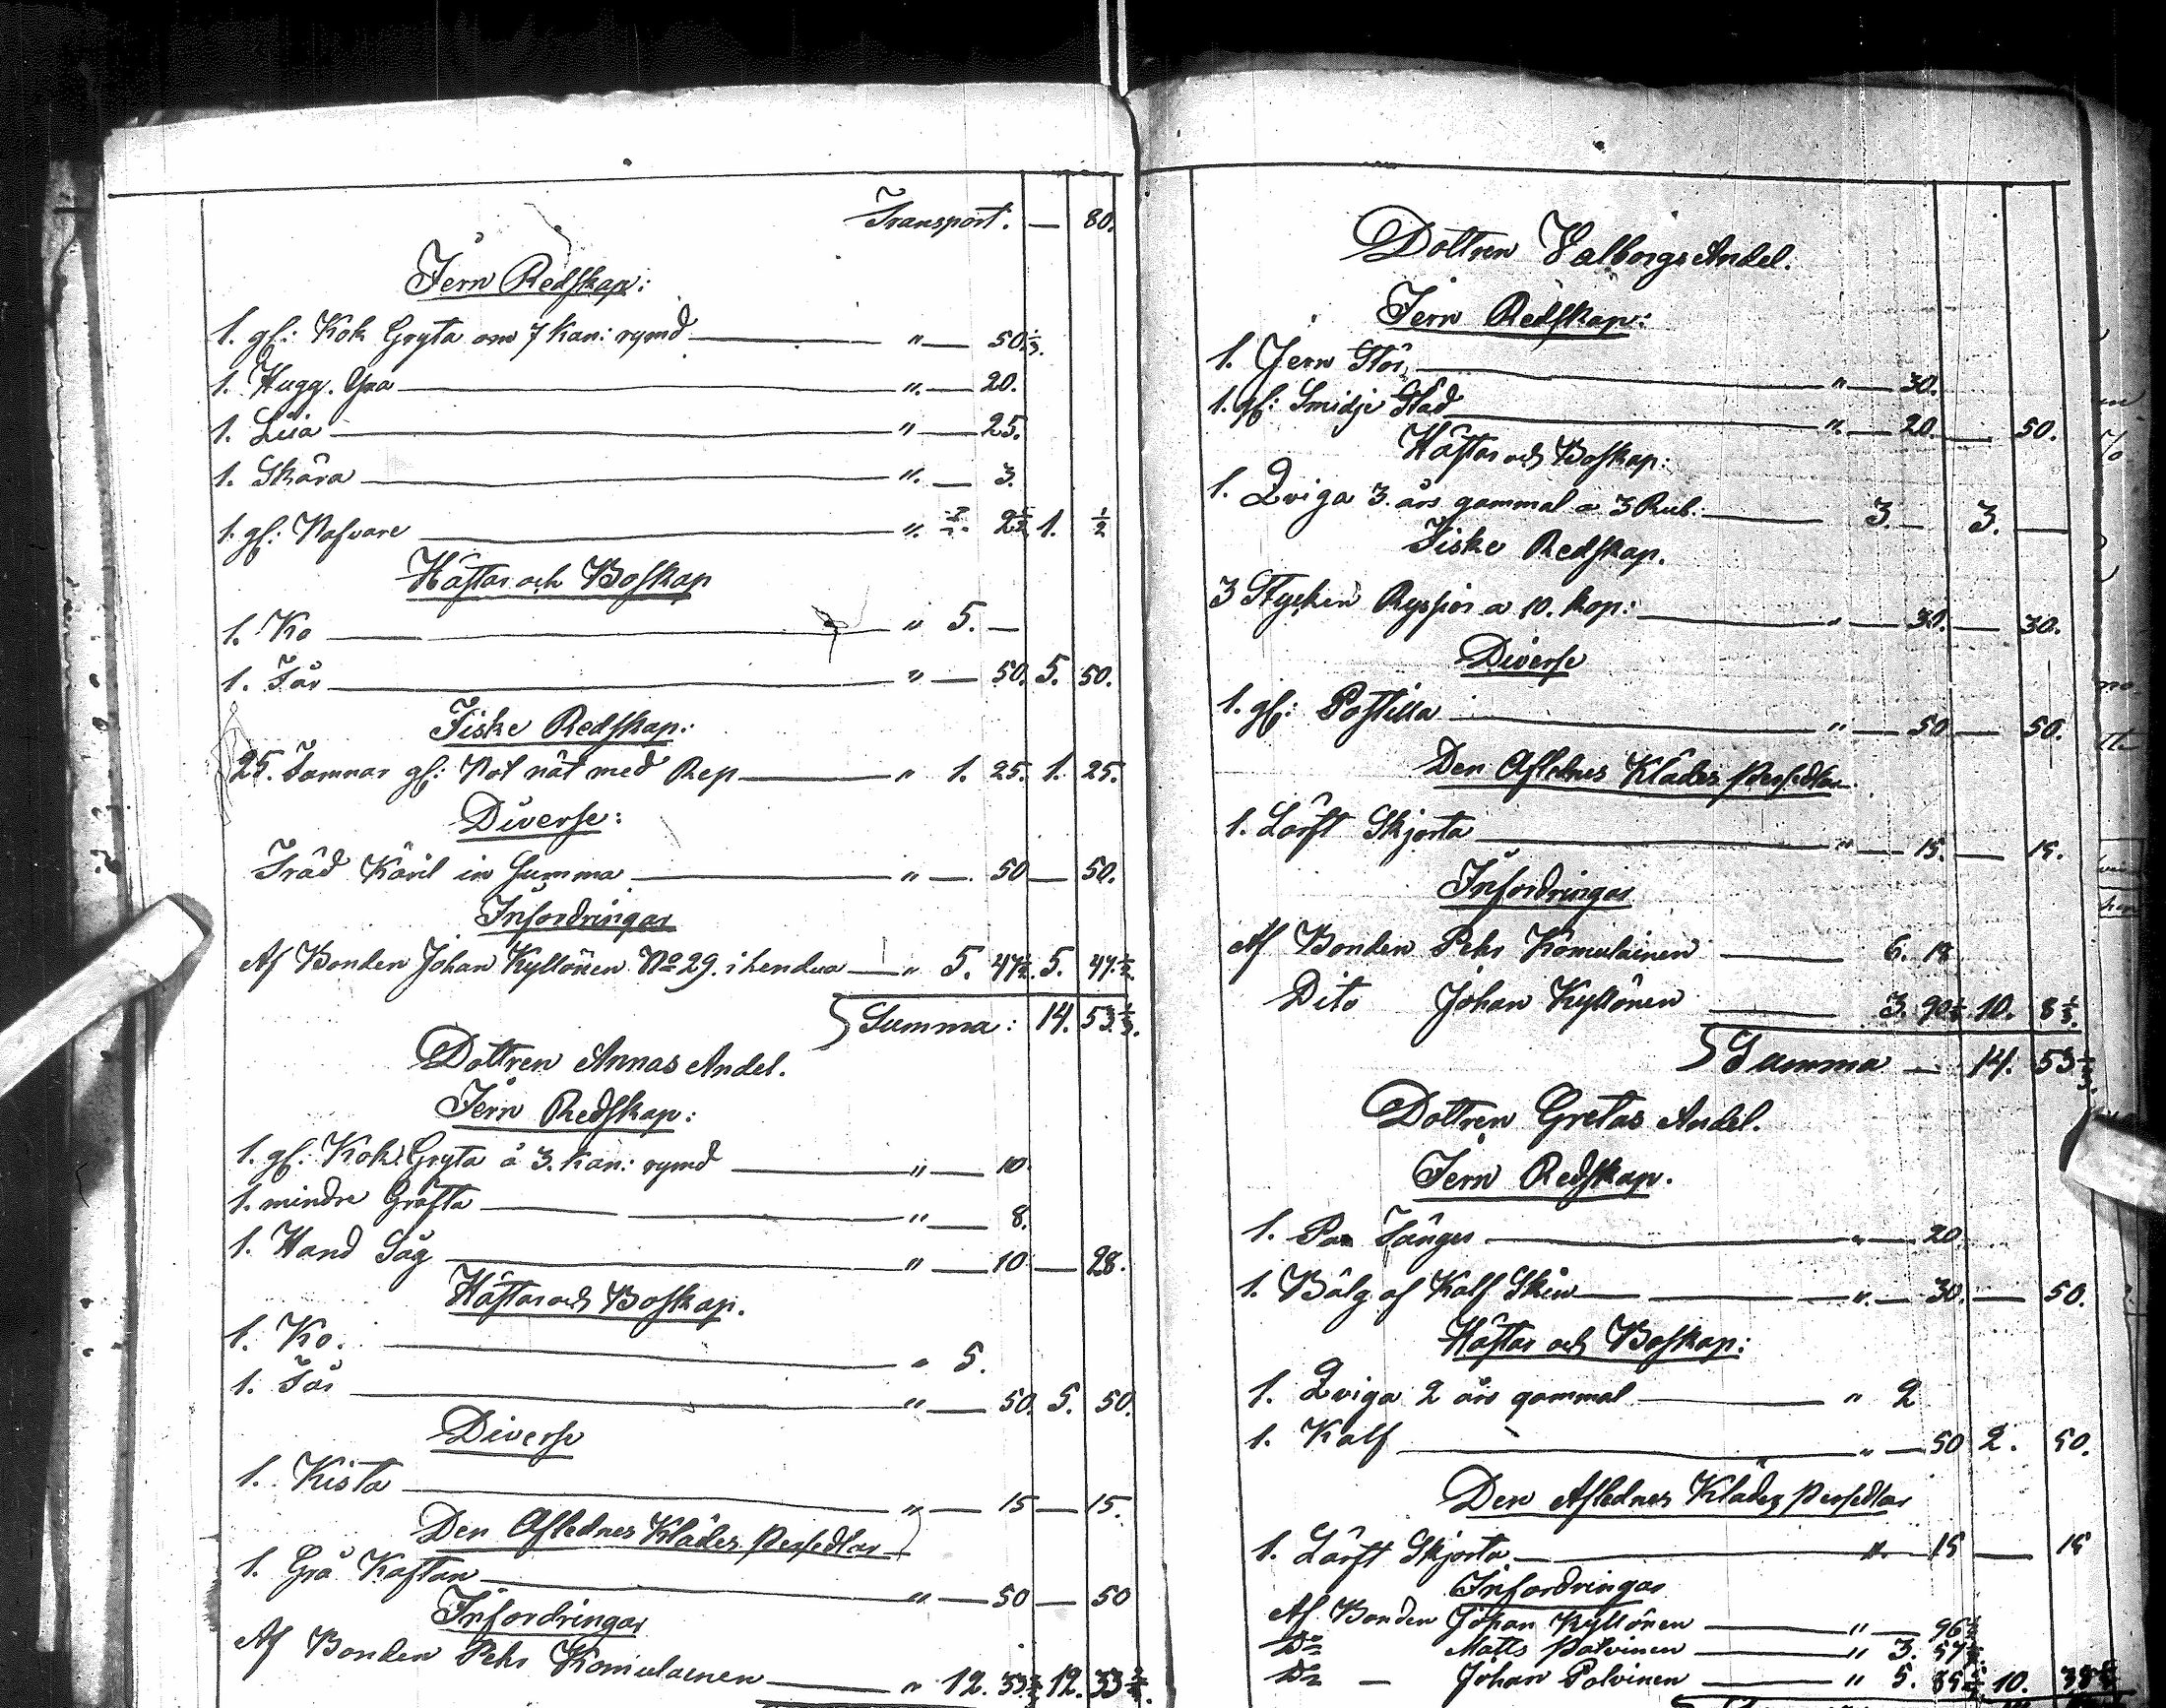 Transport. — 80.
Jern Redskap:
1. gl: Kok Gryta om 7 Kan: rymd — " — 50 1/3.
1. Hugg. Yxa — " — 20.
1. Liia — " — 25.
1. Skära — " — 3.
1. gl: Nafvare — " — 2 1/2 1. 1/2
Hästar och Boskap
1. Ko — " 5. —
1. Får — " — 50. 5. 50.
Fiske Redskap:
25. Famnar gl: Not nät med Rep — " 1. 25. 1. 25.
Diverse:
Träd Käril in Summa — " — 50 — 50.
Infordringar
Af Bonden Johan Kyllönen No 29. i hendua — " 5. 47 1/2. 5. 47 1/2.
Summa: 14. 53 1/3.
Dottren Annas Andel.
Jern Redskap:
1. gl: Kok Gryta à 3. Kan: rymd — " — 10.
1. mindre Gräfta — " — 8.
1. Hand Såg — " — 10 — 28.
Hästar och Boskap.
1. Ko. — " 5.
1. Får — " — 50. 5. 50.
Diverse
1. Kista — " — 15 — 15.
Den Aflednes Kläder Persedlar
1. Grå Kaftan — " — 50 — 50
Infordringar
Af Bonden Pehr Komulainen — " 12. 33 12. 33
Dottren Valborgs Andel.
Jern Redskap:
1. Jern Stör — " — 30.
1. gl: Smidje Städ — " — 20. — 50.
Hästar och Boskap:
1. Qviga 3. års gammal a 3 Rub. — 3. — 3. —
Fiske Redskap.
3 Stycken Ryssior a 10. kop: — " — 30. — 30.
Diverse
1. gl: Postilla — " — 50 — 50.
Den Aflednes Kläder Persedlar
1. Lärft Skjorta — " — 15. — 15.
Infordringar
Af Bonden Pehr Komulainen — 6. 18
Dito Johan Kyllönen — 3. 90 1/3 10. 8 1/3.
Summa — 14. 53 1/3.
Dottren Gretas Andel.
Jern Redskap.
1. Par Tänger — " — 20
1. Bälg af Kalf Skin — " — 30. — 50.
Hästar och Boskap:
1. Qviga 2 års gammal — " 2
1. Kalf — " — 50 2. 50.
Den Aflednes Kläder Persedlar
1. Lärft Skjorta — " — 15 — 15
Infordringar
Af Bonden Johan Kyllönen — " — 96
Do Matts Polvinen — " 3. 57
Do — Johan Polvinen — " 5. 10. 38